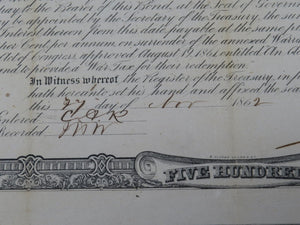 to the Bearer of this Bond, at the Seat of Govern
be appointed by the Secretary of the Treasury, the su
Interest thereon from this date payable at the same
Cent per annum on surrender of the annexed Warra
Act of Congress approved August
and to provide a War Tax for their redemption.
In Witness whereof the Register of the Treasury, in
hath hereunto set his hand and affixed the seal
this 27 day of Nov 1862
Entered
Recorded
FIVE HUNDRED